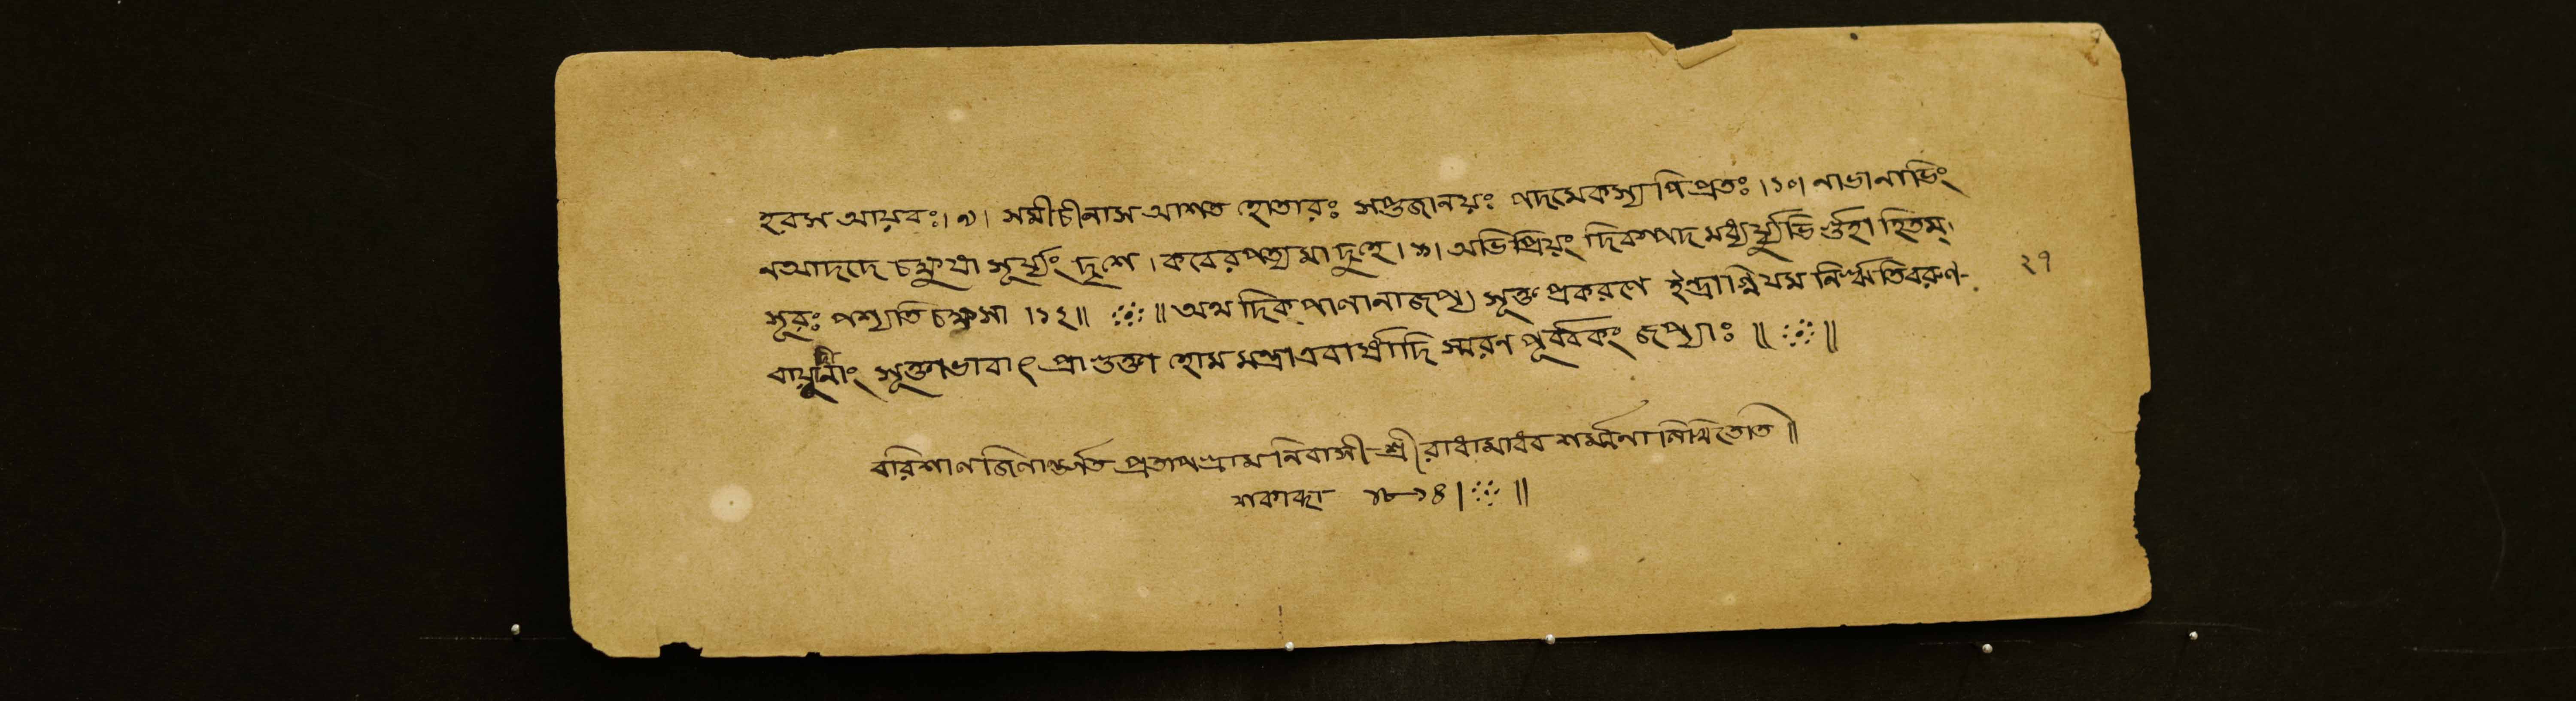 হরস আয়বঃ। ৯। সমীচীনাস আশত হোতারঃ সপ্তজানয়ঃ পদমেকস্য পিপ্রতঃ।১০। নাভানাভিং
নআদদে চক্ষুষা সূর্য্যং দৃশে। কবেরপত্যমা দুহে। ১১। অভিপ্রিয়ং দিবস্পদ মধ্বর্য্যুভি র্গুহা হিতম্।
সূরঃ পশ্যতি চক্ষসা ।১২॥ ॥ অথ দিক্‌পালানাং জপ্য সূক্ত প্রকরণে ইন্দ্রাগ্নি যম নির্ঋতি বরুণ-
বায়ূনাং সূক্তাভাবাৎ প্রাগুক্তা হোম মন্ত্রা এবার্ষাদি স্মরণ পূর্ব্বকং জপ্যাঃ ॥ ॥
২৭
বরিশাল জিলান্তর্গত প্রতাপগ্রাম নিবাসী শ্রীরাধামাধব শর্ম্মণা লিখিতেতি॥
শকাব্দা ১৮১৪। ॥